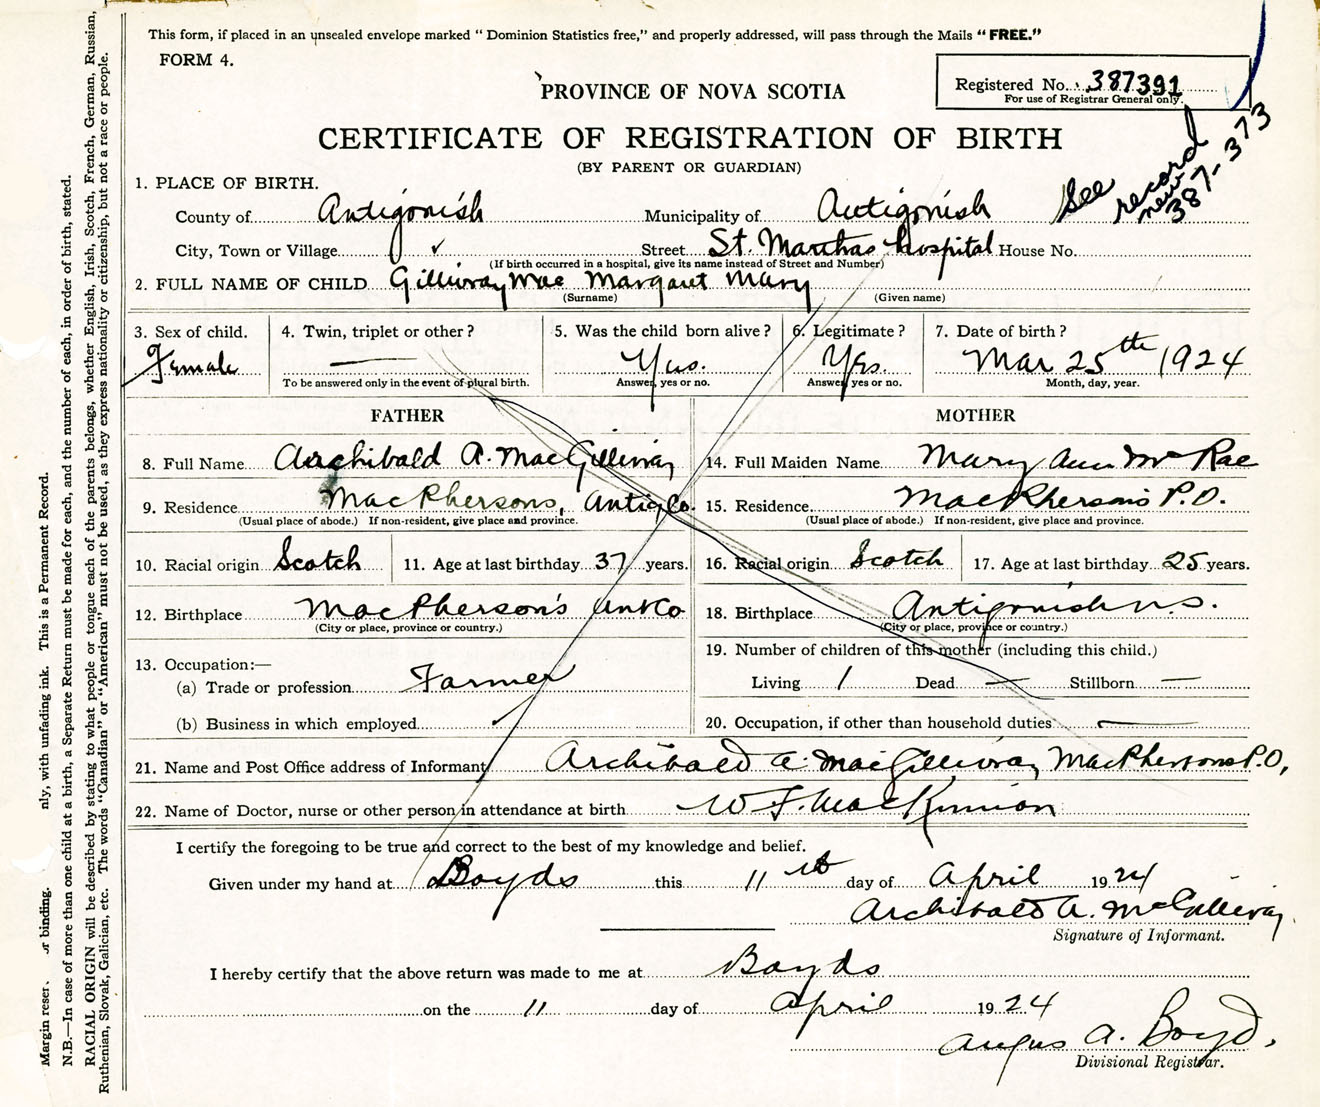 This form, if placed in an unsealed envelope marked "Dominion Statistics free," and properly addressed, will pass through the Mails "FREE."
FORM 4.
Registered No. 387391
For use of Registrar General only.
PROVINCE OF NOVA SCOTIA
CERTIFICATE OF REGISTRATION OF BIRTH
(BY PARENT OR GUARDIAN)
See record new 387-373
1. PLACE OF BIRTH.
County of Antigonish Municipality of Antigonish
City, Town or Village ✓ Street St. Marthas Hospital House No.
(If birth occurred in a hospital, give its name instead of Street and Number)
2. FULL NAME OF CHILD Gillivray Mac Margaret Mary
(Surname) (Given name)
3. Sex of child. 4. Twin, triplet or other? 5. Was the child born alive? 6. Legitimate? 7. Date of birth?
Female — Yes. Yes. Mar 25th 1924
To be answered only in the event of plural birth. Answer, yes or no. Answer, yes or no. Month, day, year.
FATHER MOTHER
8. Full Name Archibald A. MacGillivray 14. Full Maiden Name Mary Ann McRae
9. Residence MacPhersons, Antig Co. 15. Residence MacPhersons P.O.
(Usual place of abode.) If non-resident, give place and province. (Usual place of abode.) If non-resident, give place and province.
10. Racial origin Scotch 11. Age at last birthday 37 years. 16. Racial origin Scotch 17. Age at last birthday 25 years.
12. Birthplace MacPherson's Ant Co 18. Birthplace Antigonish N.S.
(City or place, province or country.) (City or place, province or country.)
13. Occupation:— 19. Number of children of this mother (including this child.)
(a) Trade or profession Farmer Living 1 Dead — Stillborn —
(b) Business in which employed ✓ 20. Occupation, if other than household duties —
21. Name and Post Office address of Informant Archibald A. MacGillivray MacPhersons P.O.
22. Name of Doctor, nurse or other person in attendance at birth W F. MacKinnon
I certify the foregoing to be true and correct to the best of my knowledge and belief.
Given under my hand at Boyds this 11th day of April 1924
Archibald A. McGillivray
Signature of Informant.
I hereby certify that the above return was made to me at Boyds
on the 11 day of April 1924
Angus A. Boyd.
Divisional Registrar.
Margin reser or binding. nly, with unfading ink. This is a Permanent Record.
N.B.—In case of more than one child at a birth, a Separate Return must be made for each, and the number of each, in order of birth, stated.
RACIAL ORIGIN will be described by stating to what people or tongue each of the parents belongs, whether English, Irish, Scotch, French, German, Russian,
Ruthenian, Slovak, Galician, etc. The words "Canadian" or "American" must not be used, as they express nationality or citizenship, but not a race or people.